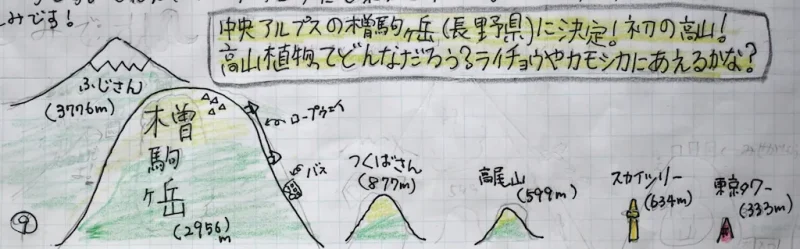 みです!
中央アルプスの木曽駒ヶ岳(長野県)に決定!初の高山!
高山植物ってどんなだろう?ライチョウやカモシカにあえるかな?
ふじさん
(3776m)
木曽駒ヶ岳
(2956m)
ロープウェイ
バス
つくばさん
(877m)
高尾山
(599m)
スカイツリー
(634m)
東京タワー
(333m)
⑨